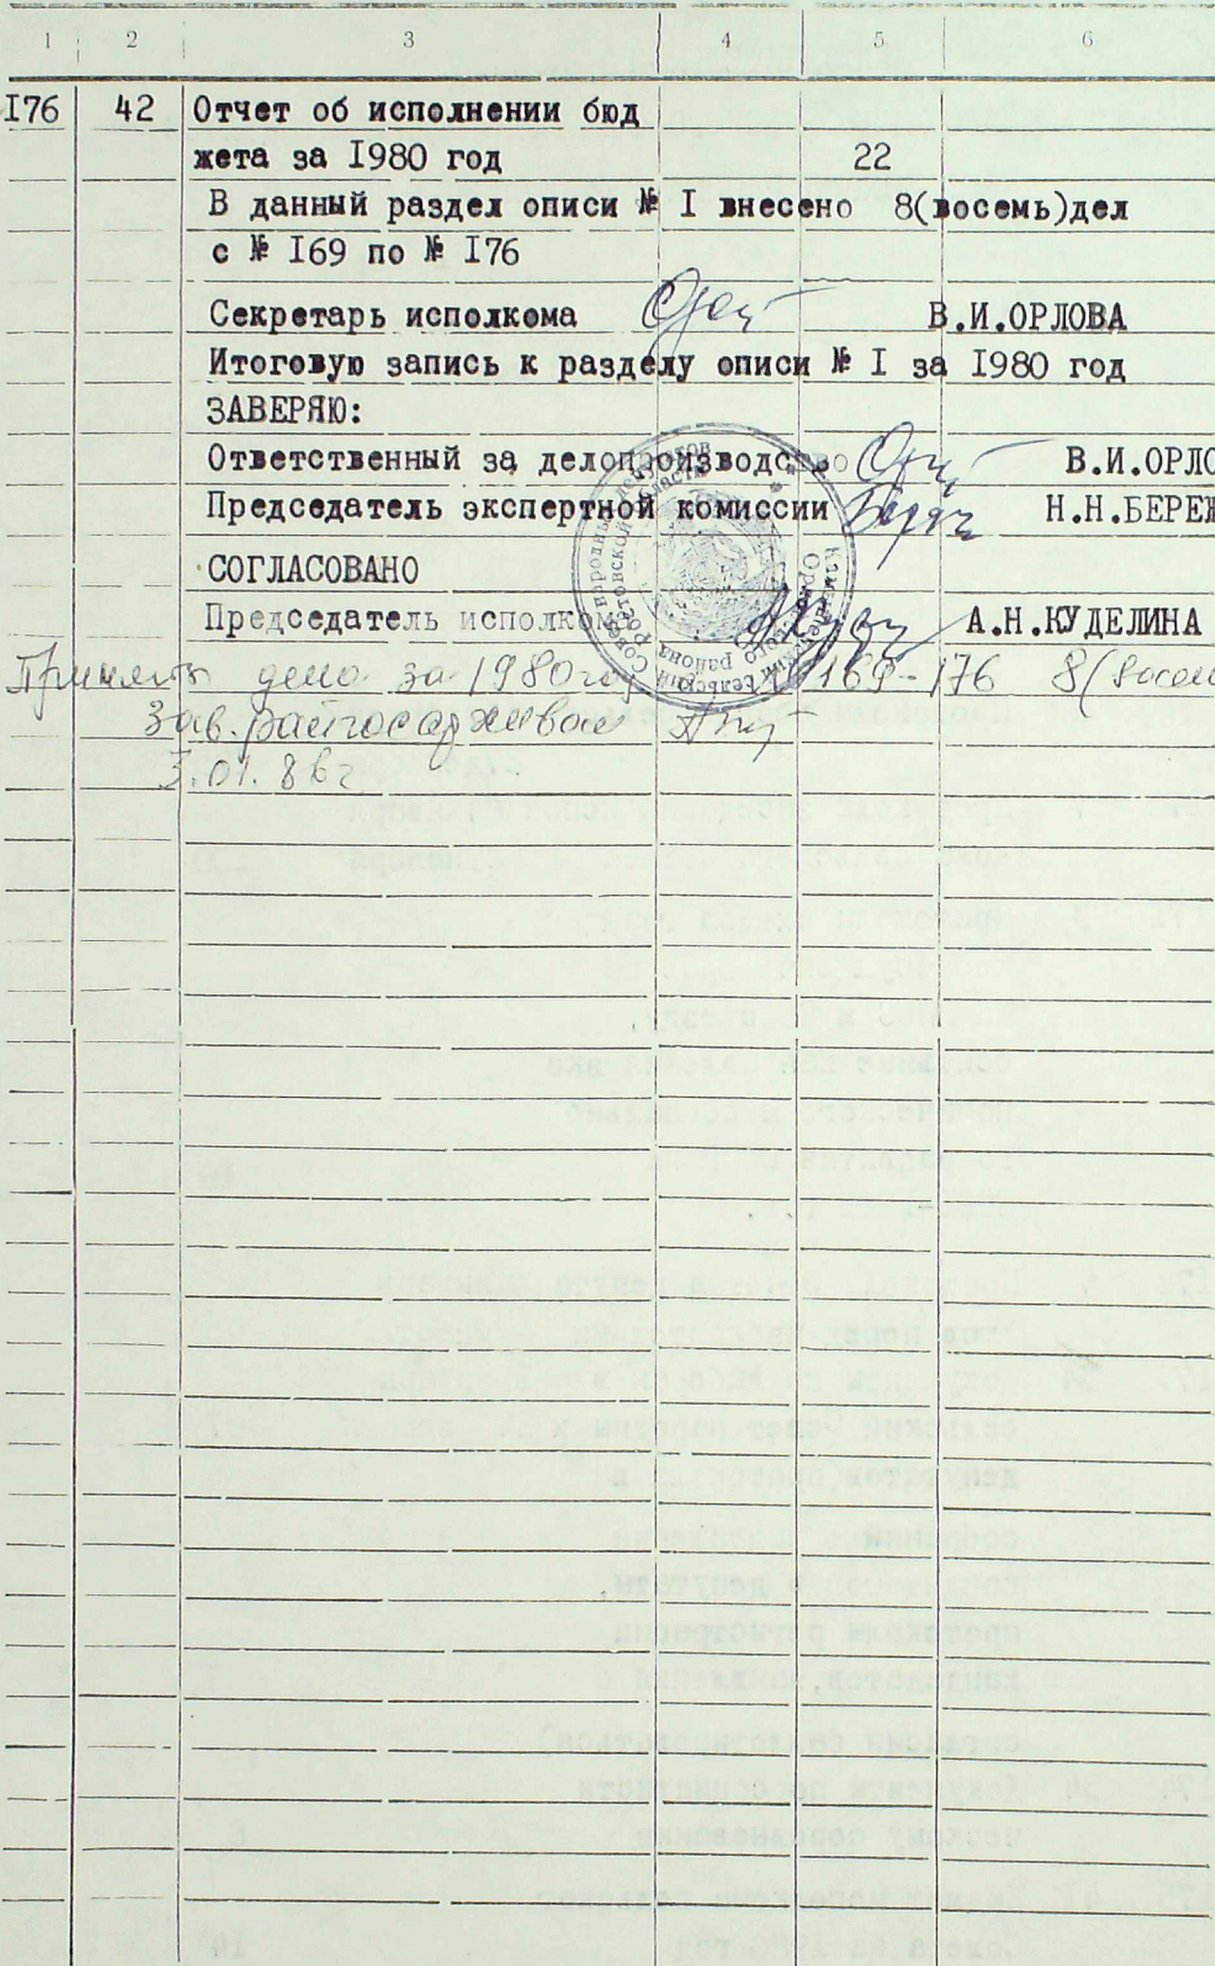 1 2 3 4 5 6
I76 42 Отчет об исполнении бюд
жета за I980 год 22
В данный раздел описи № I внесено 8(восемь)дел
с № I69 по № I76
Секретарь исполкома В.И.ОРЛОВА
Итоговую запись к разделу описи № I за I980 год
ЗАВЕРЯЮ:
Ответственный за делопроизводство В.И.ОРЛО
Председатель экспертной комиссии Н.Н.БЕРЕЖ
СОГЛАСОВАНО
Председатель исполкома А.Н.КУДЕЛИНА
дела за 1980 169-176 8(восем
Зав. райгосархивом
3.01.86г